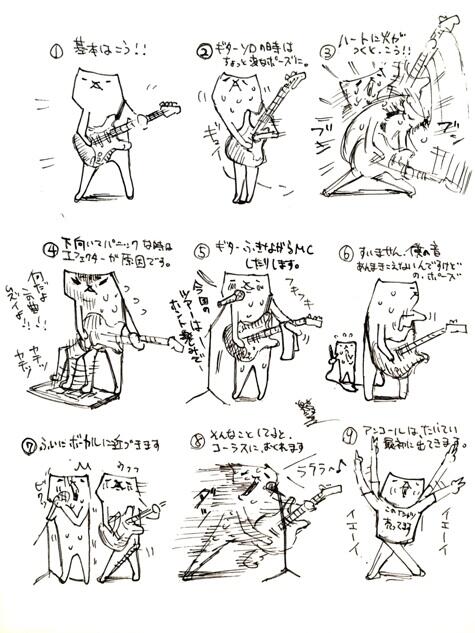 ① 基本はこう!!
② ギターソロの時は
ちょっと変なポーズに。
ギュイーン
③ ハートに火が
つくと、こう!!
ブン
ブン
④ 下向いてパニックな時は
エフェクターが原因です。
何だよ
この曲
ムズイよ!!!
カチッ
カチッ
⑤ ギターふきながらMC
したりします。
フキフキ
今回の
ツアーは
ホント楽しみで
⑥ すいません、僕の音
あんまきこえないんですけど
の、ポーズ
⑦ ふいにボーカルに近づきます
ビクッ
⑧ そんなことしてると、
コーラスに、おくれます
ラララ〜♪
⑨ アンコールは、だいたい
最初に出てきます。
イエーイ
イエーイ